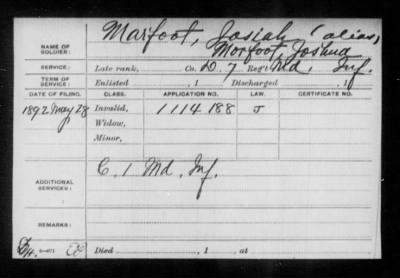 Marfoot, Josiah (alias,
NAME OF SOLDIER: Morfoot, Joshua
SERVICE: Late rank, Co. D. 7 Reg't Md. Inf.
TERM OF SERVICE: Enlisted , 1 Discharged , 1
DATE OF FILING. CLASS. APPLICATION NO. LAW. CERTIFICATE NO.
1892 May 28 Invalid, 1114188 J
Widow,
Minor,
ADDITIONAL SERVICES: C. 1 Md. Inf.
REMARKS:
Died , 1 , at